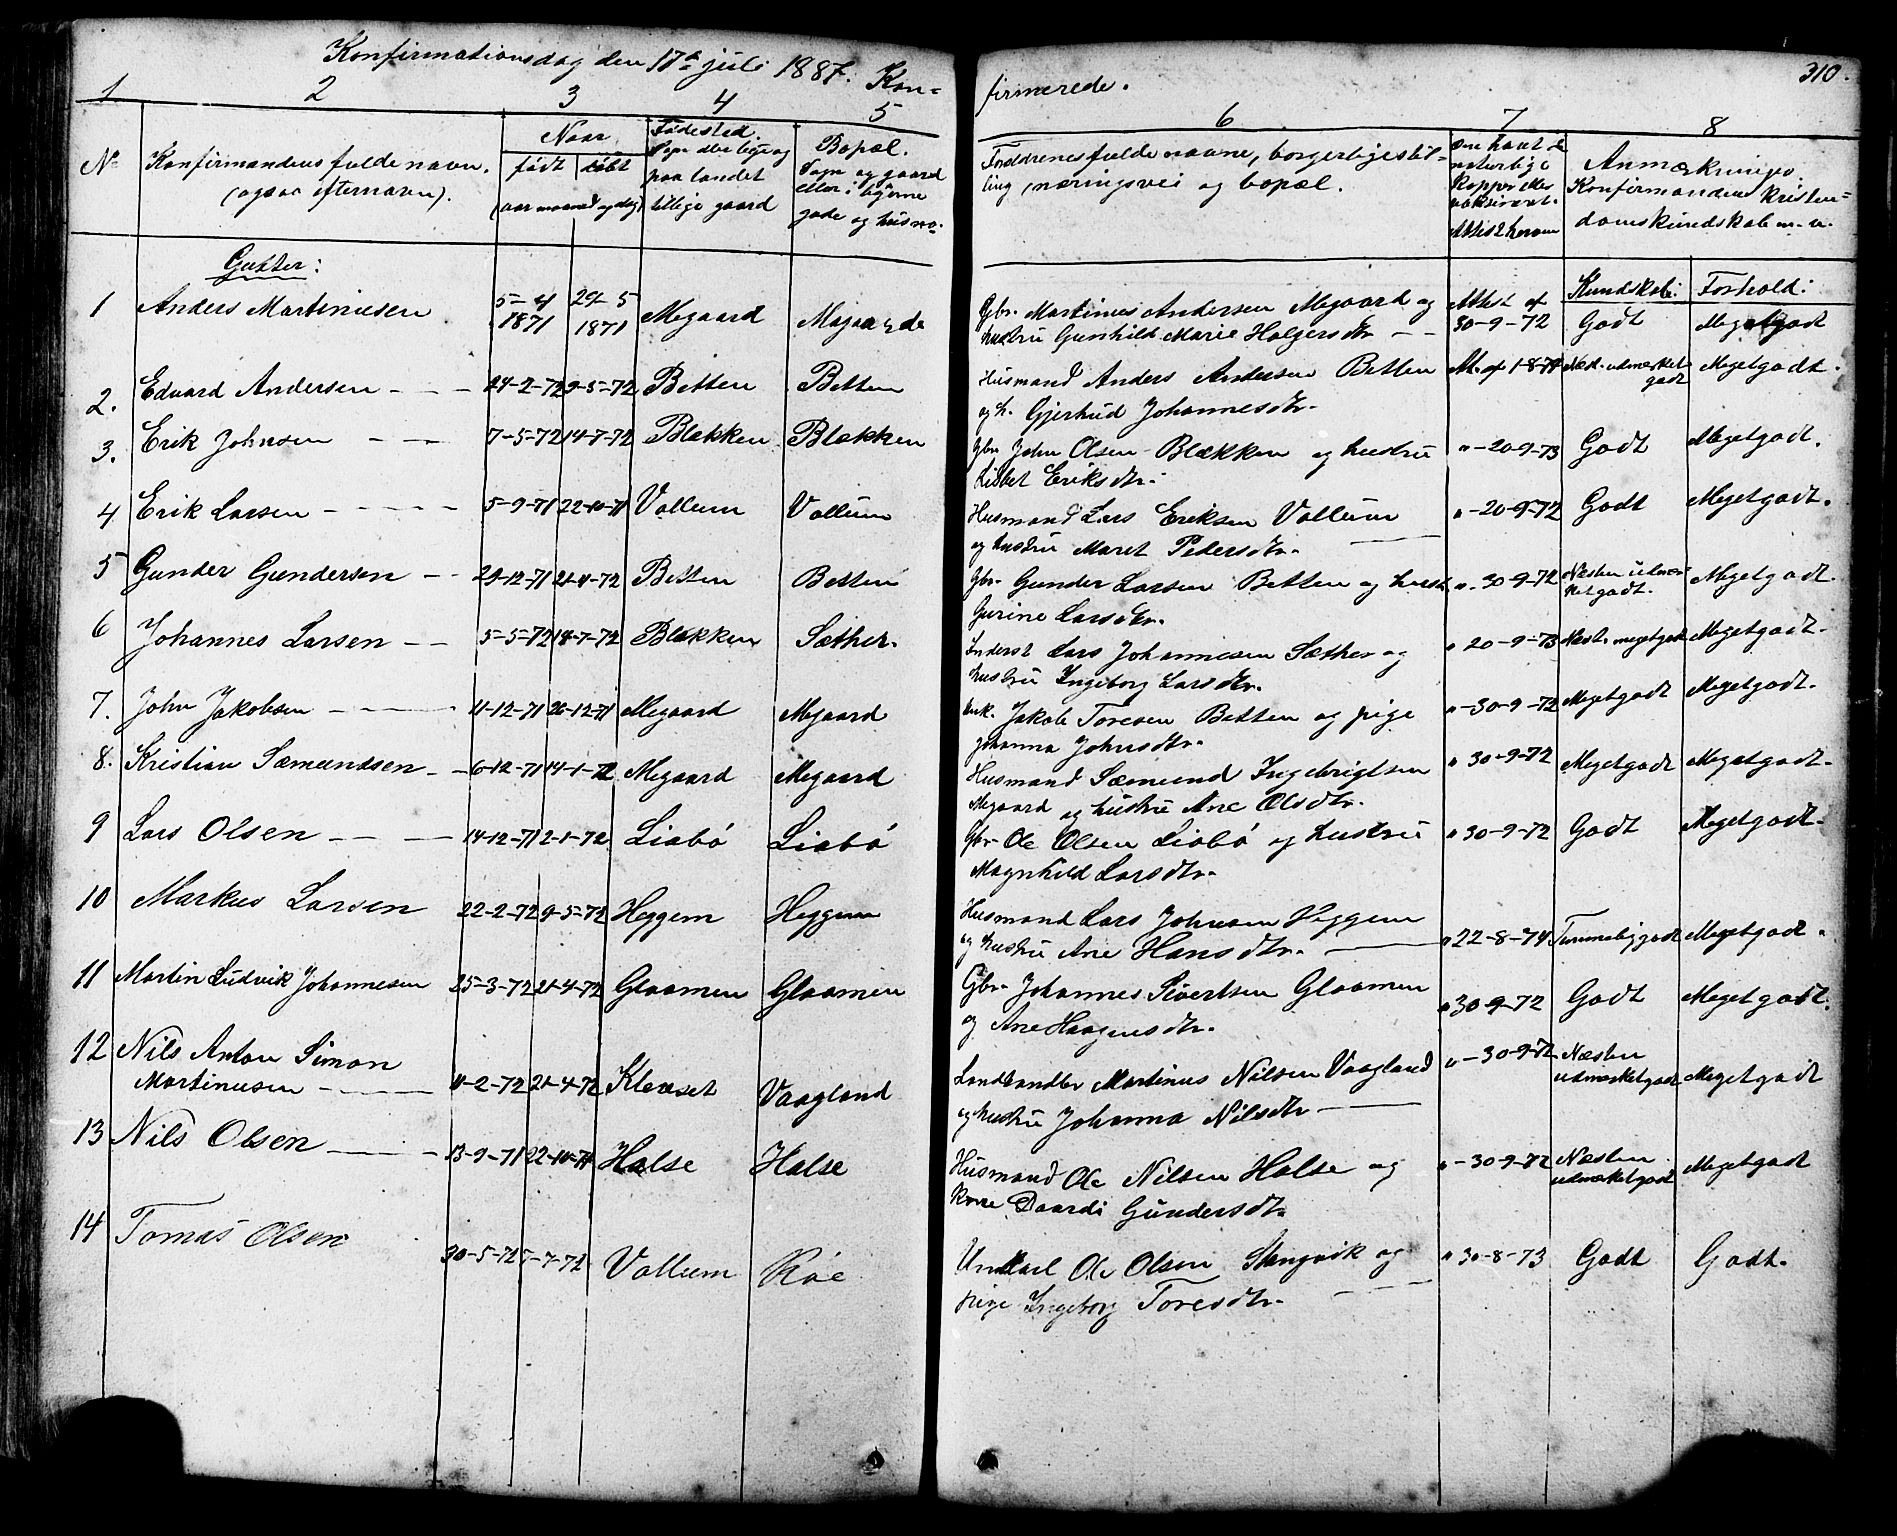 Konfirmationsdag den 17de juli 1887. Kon=
firmerede.
310.
1 2 3 4 5 6 7 8
No Konfirmandens fulde navn. (ogsaa efternavn).
Naar
født | døbt
(aar maaned og dag)
Fødested.
paa landet
tillige gaard
Bopæl.
Sogn og gaard
eller i byerne
gade og husno.
Forældrenes fulde navne, borgerlige stil=
ling, næringsvei og bopæl.
Om havt de
naturlige
kopper eller
vaksineret.
Attest herom
Anmærkninger.
Konfirmandens kristen=
domskundskab m. v.
Gutter:
Kundskab: Forhold:
1 Anders Martinusen 5-4 1871 29-5 1871 Megaard Megaard Gbr. Martinus Andersen Megaard og Attest af 30-9-72 Godt Megetgodt
hustru Gunhild Marie Holgersdtr
2. Edvard Andersen 24-2-72 9-5-72 Betten Betten Husmand Anders Andersen Betten At. af 1-8-74 Næst. udmærket godt Megetgodt.
og h. Gjertrud Johannesdtr.
3. Erik Johnsen 7-5-72 14-7-72 Blekken Blekken Gbr. John Olsen Blækken og hustru "-20-9-73 Godt Megetgodt.
Lisbet Eriksdtr.
4 Erik Larsen 5-9-71 22-10-71 Vollum Vollum Husmand Lars Eriksen Vollum "-20-9-72 Godt Megetgodt.
og hustru Maret Pedersdtr.
5 Gunder Gundersen 29-12-71 21-4-72 Betten Betten Gbr. Gunder Larsen Betten og hust. "-30-9-72 Næsten udmær- ketgodt. Megetgodt.
Gurine Larsdtr.
6 Johannes Larsen 5-5-72 14-7-72 Blekken Sæther. Inderst Lars Johannesen Sæther og " 20-9-73 Næst. megetgodt Megetgodt.
hustru Ingeborg Larsdtr.
7. John Jakobsen 11-12-71 26-12-71 Megaard Megaard Jakob Toresen Betten og pige "-30-9-72 Megetgodt Megetgodt.
Johanna Johnsdtr.
8. Kristian Sæmundsen 6-12-71 14-1-72 Megaard Megaard Husmand Sæmund Ingebrigtsen " 30-9-72 Megetgodt Megetgodt.
Megaard og hustru Ane Olsdtr.
9 Lars Olsen 14-12-71 2-1-72 Liabö Liabö Gbr. Ole Olsen Liabö og hustru " 30-9-72 Godt Megetgodt.
Magnhild Larsdtr.
10 Markus Larsen 22-2-72 9-5-72 Heggem Heggem Husmand Lars Johnsen Heggem " 22-8-74 Temmeliggodt Megetgodt.
og hustru Ane Hansdtr.
11 Martin Ludvik Johannesen 25-3-72 21-4-72 Glaamen Glaamen Gbr. Johannes Sivertsen Glaamen " 30-9-72 Godt Megetgodt.
og Ane Haagensdtr.
12 Nils Anton Simon
Martinusen 11-2-72 21-4-72 Klevset Vaagland Landhandler Martinus Nilsen Vaagland "-30-9-72 Næsten udmærketgodt Megetgodt
og hustru Johanna Nilsdtr
13 Nils Olsen 13-9-71 22-10-71 Halse Halse Husmand Ole Nilsen Halse og "-30-9-72 Næsten udmærketgodt Megetgodt
kone Daardi Gundersdtr.
14 Tomas Olsen 30-5-72 7-7-72 Vollum Röe Ungkarl Ole Olsen Stangvik og " 30-8-73 Godt Godt.
pige Ingeborg Toresdtr.